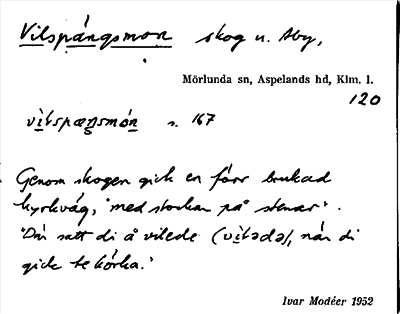 Vilspångsmon skog u. Åby,
Mörlunda sn, Aspelands hd, Klm. l.
120
s. 167
Genom skogen gick en förr brukad
kyrkväg, "med stockar på stenar".
"Där satt di å vilede (vìləda), när di
gick te körka."
Ivar Modéer 1952